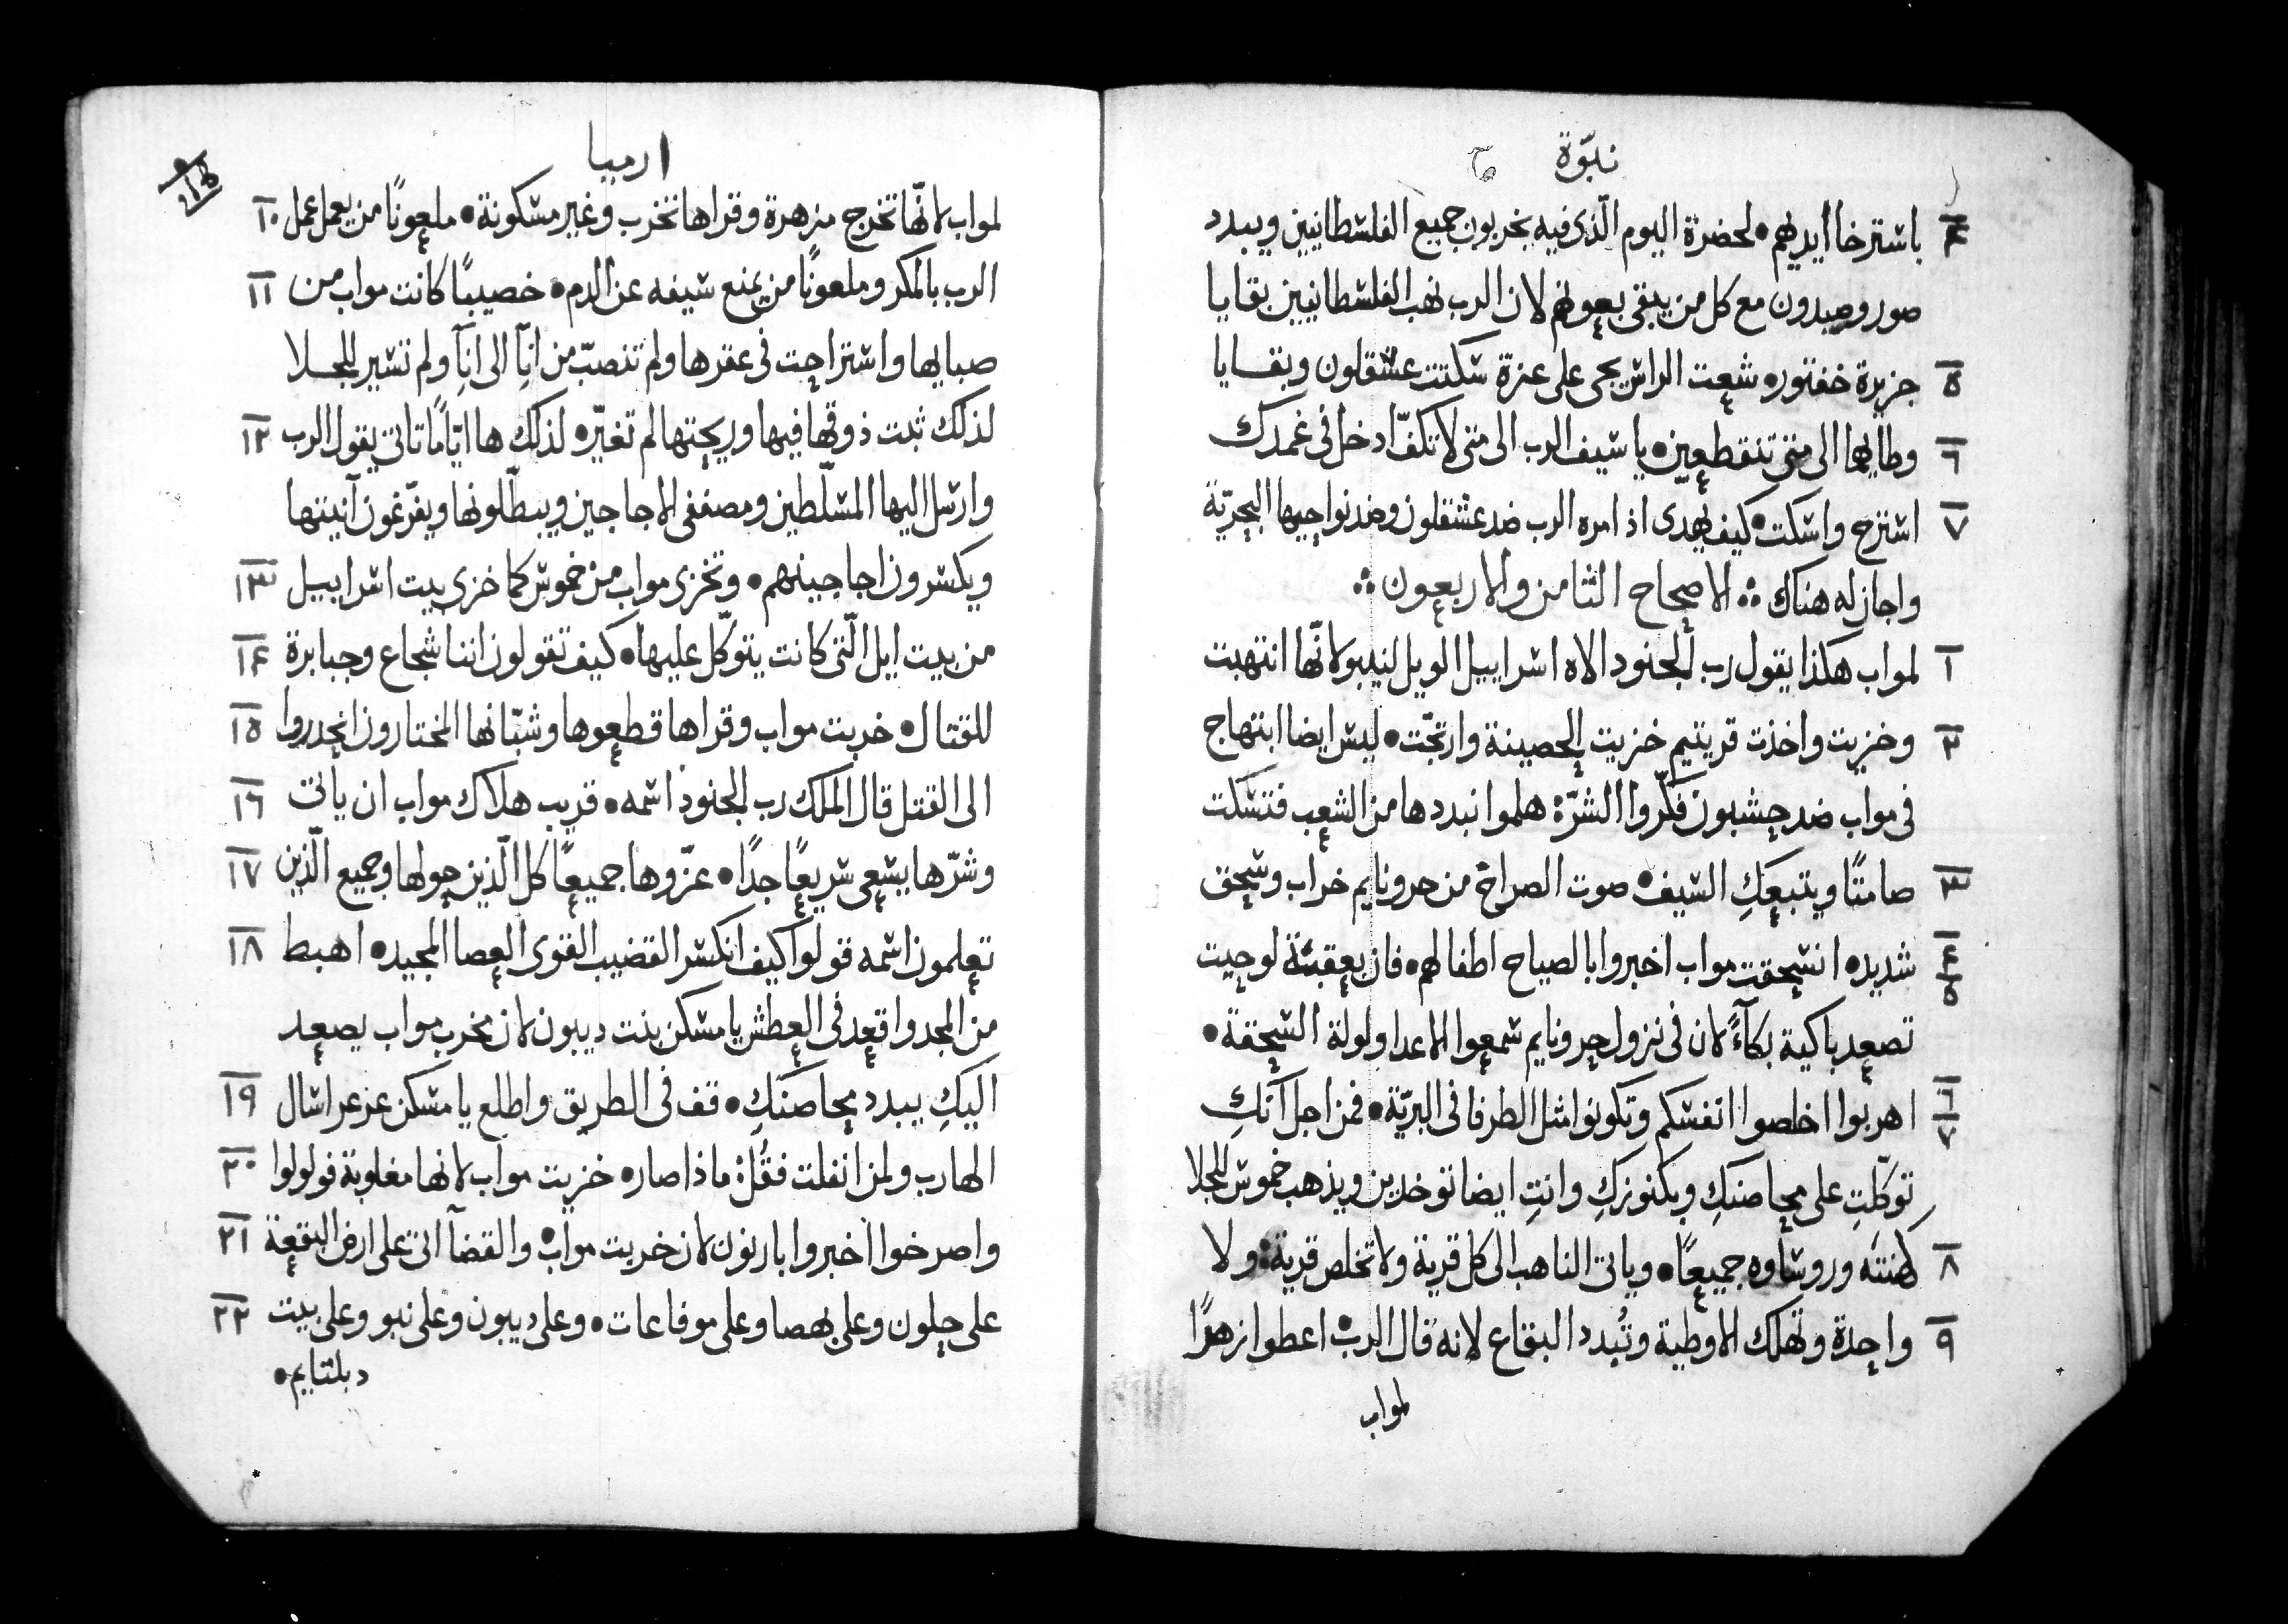 نبوّة
٤ باسترخا ايديهم • لحضرة اليوم الّذى فيه يخربون جميع الفلسطانيين ويبدد
صور وصيدون مع كل من يبقى بعونهم لان الرب نهب الفلسطانيين بقايا
٥ جزيرة خفتور • شعت الراس يجى على عزة سكتت عشقلون وبقايا
٦ وطايهما الى متى تنقطعين • يا سيف الرب الى متى لا تكفّ ادخل فى غمدك
٧ استرح واسكت • كيف يهدى اذ امره الرب ضد عشقلون وضد نواحيها البحريّة
واجازله هناك ∴ الاصحاح الثامن والاربعون ∴
١ لمواب هكذا يقول رب الجنود الاه اسراييل الويل لنيبو لانّها انتهبت
٢ وخزيت واخذت قريتيم خزيت الحصينة وارتجّت • ليس ايضا ابتهاج
فى مواب ضد حشبون فكّروا الشرّ هلموا نبددها من الشعب فتسكت
٣ صامتًا ويتبعكِ السيف • صوت الصراخ من حرونايم خراب وسحق
٤ ٥ شديد • انسحقت مواب اخبروا بالصياح اطفالهم • فان بعقبة لوحيت
تصعد باكية بكآءً لان فى نزول حرونايم سمعوا الاعدا ولولة السحقة •
٦ ٧ اهربوا اخلصوا انفسكم وتكونوا مثل الطرفا فى البريّة • فمن اجل انّكِ
توكّلتِ على محاصنكِ وبكنوزكِ وانتِ ايضا توخدين ويذهب خموس للجلا
٨ كهنته وروساوه جميعًا • وياتى الناهب الى كل قرية ولا تخلص قرية • ولا
٩ واحدة وتهلك الاوطية وتُبدد البقاع لانه قال الرب • اعطوا زهرًا
لمواب
ارميا
لمواب لانّها تخرج مزهرة وقراها تخرب وغير مسكونة • ملعونًا من يعمل عمل ١٠
الرب بالمكر وملعونًا من يمنع سيفه عن الدم • خصيبًا كانت مواب من ١١
صبايها واستراحت فى عقرها ولم تنصبّ من انآِ الى انآِ ولم تسير للجلا
لذلك ثبت ذوقها فيها وريحتها لم تغيّر • لذلك ها ايّامًا تاتى يقول الرب ١٢
وارسل اليها المسلّطين ومصففى الاجاجين ويبطّلونها ويفرّغون آنيتها
ويكسرون اجاجينهم • وتخزى مواب من خموس كما خزى بيت اسراييل ١٣
من بيت ايل الّتى كانت يتوكّل عليها • كيف تقولون اننا شجاع وجبابرة ١٤
للقتال • خربت مواب وقراها قطعوها وشبّانها المختارون انحدروا ١٥
الى القتل قال الملك رب الجنود اسمه • قريب هلاك مواب ان ياتى ١٦
وشرّها يسعى سريعًا جدًا • عزّوها جميعًا كل الّذين حولها وجميع الّذين ١٧
تعلمون اسمه قولوا كيف انكسر القضيب القوى العصا المجيد • اهبط ١٨
من المجد واقعد فى العطش يا مسكن بنت ديبون لان مخرب مواب يصعد
اليكِ يبدد محاصنَكِ • قف فى الطريق واطلع يا مسكن عزعر اسال ١٩
الهارب ولمن انفلت فقُل ماذا صار • خزيت مواب لانها مغلوبة فولولوا ٢٠
واصرخوا اخبروا بارنون لان خربت مواب • والقضآ اتى على ارض البقعة ٢١
على حلون وعلى يهصا وعلى موفاعات • وعلى ديبون وعلى نبو وعلى بيت ٢٢
دبلتايم •